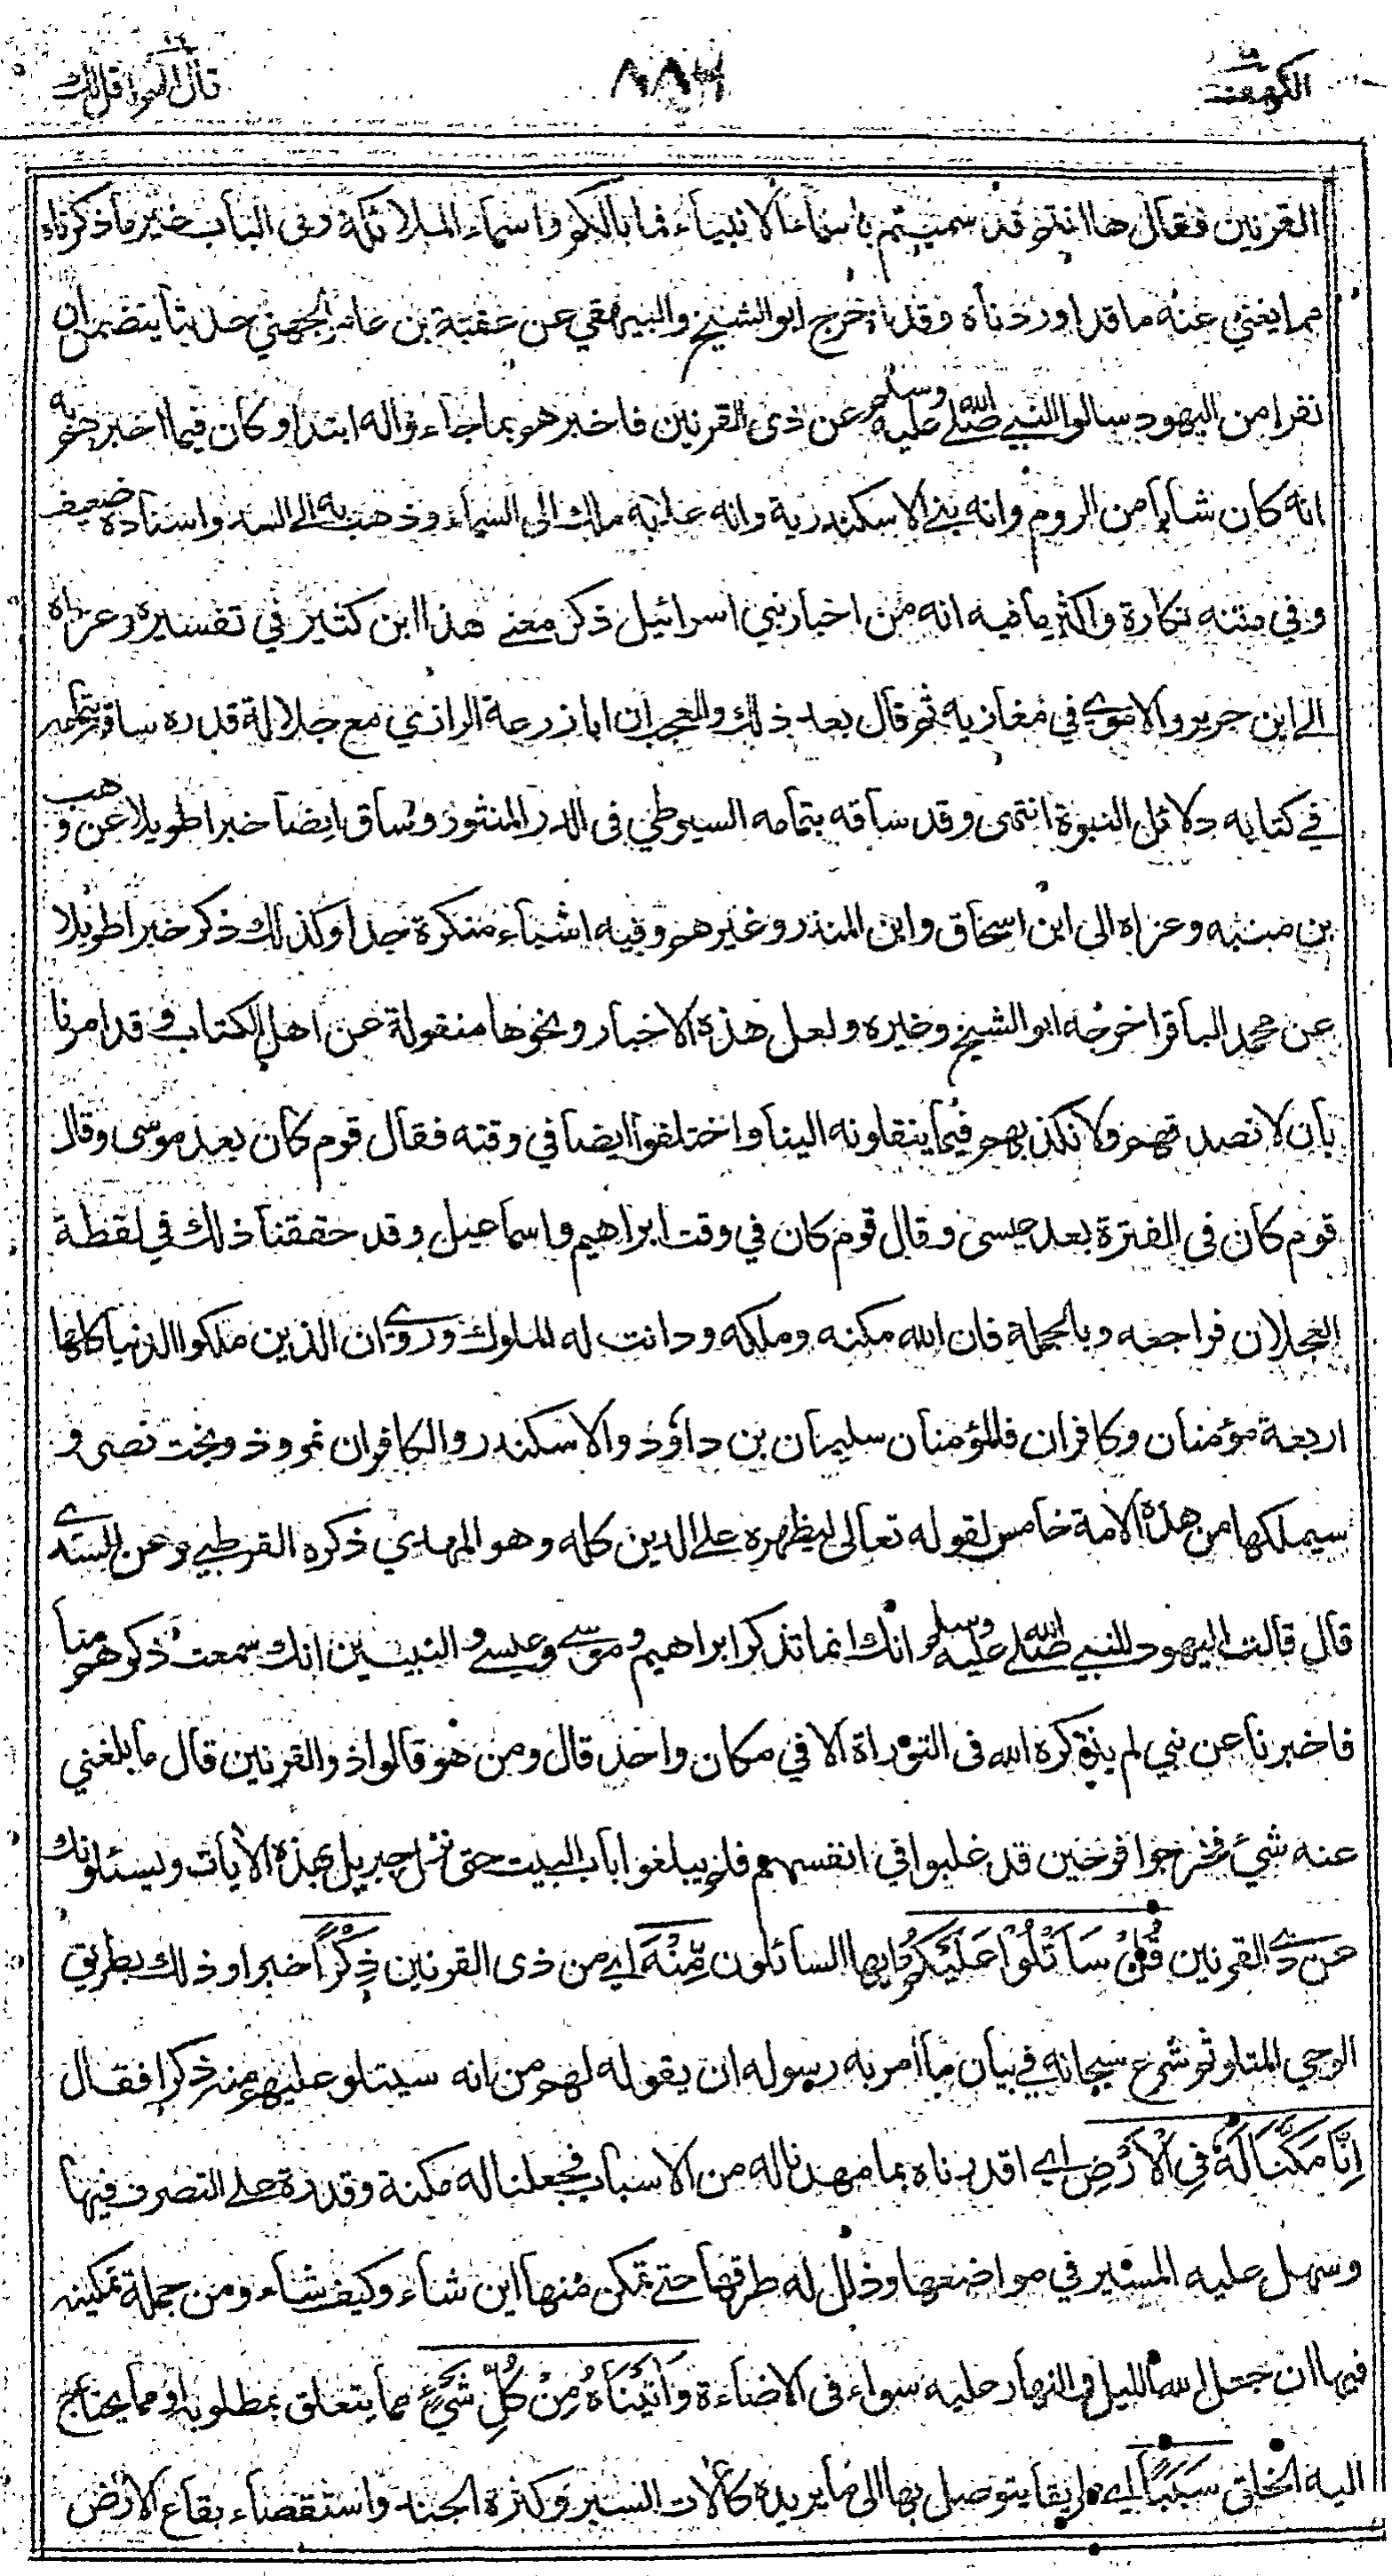 الكهف
٨٨٤
قال الم اقل لك
القرنين فقال ها انتم قد سميتم باسماء الانبياء فما بالكم واسماء الملائكة وفى الباب غير ما ذكرناه
مما يغني عنه ما قد اوردناه وقد اخرج ابو الشيخ والبيهقي عن عقبة بن عامر الجهني حديثا يتضمن ان
نفرا من اليهود سالوا النبي صلى الله عليه وسلم عن ذى القرنين فاخبرهم بما جاءوا له ابتداء وكان فيما اخبرهم به
انه كان شابا من الروم وانه بنى الاسكندرية وانه علا به ملك الى السماء وذهب به الى السد واسناده ضعيف
وفي متنه نكارة واكثر ما فيه انه من اخبار بني اسرائيل ذكر معنى هذا ابن كثير في تفسيره وعزاه
الى ابن جرير والاموي في مغازيه ثم قال بعد ذلك والعجب ان ابا زرعة الرازي مع جلالة قدره ساقه بتمامه
في كتابه دلائل النبوة انتهى وقد ساقه بتمامه السيوطي فى الدر المنثور وساق ايضا خبرا طويلا عن وهب
بن منبه وعزاه الى ابن اسحاق وابن المنذر وغيرهم وفيه اشياء منكرة جدا وكذلك ذكر خبرا طويلا
عن محمد الباقر اخرجه ابو الشيخ وغيره ولعل هذه الاخبار ونحوها منقولة عن اهل الكتاب وقد امرنا
بان لا نصدقهم ولا نكذبهم فيما ينقلونه الينا واختلفوا ايضا في وقته فقال قوم كان بعد موسى وقال
قوم كان فى الفترة بعد عيسى وقال قوم كان في وقت ابراهيم واسماعيل وقد حققنا ذلك في لقطة
العجلان فراجعه وبالجملة فان الله مكنه وملكه ودانت له الملوك وروي ان الذين ملكوا الدنيا كلها
اربعة مؤمنان وكافران فالمؤمنان سليمان بن داؤد والاسكندر والكافران نمروذ وبخت نصر و
سيملكها من هذه الامة خامس لقوله تعالى ليظهره على الدين كله وهو المهدي ذكره القرطبي وعن السدي
قال قالت اليهود للنبي صلى الله عليه وسلم انك انما تذكر ابراهيم وموسى وعيسى والنبيين انك سمعت ذكرهم منا
فاخبرنا عن نبي لم يذكره الله فى التوراة الا في مكان واحد قال ومن هو قالوا ذو القرنين قال ما بلغني
عنه شيء فخرجوا فرحين قد غلبوا في انفسهم فلم يبلغوا باب البيت حتى نزل جبريل بهذه الأيات ويسئلونك
عن ذي القرنين قُلْ سَأَتْلُوْا عَلَيْكُمْ ايها السائلون مِّنْهُ اي من ذى القرنين ذِكْرًا خبرا وذلك بطريق
الوحي المتلو ثم شرع سبحانه في بيان ما امر به رسوله ان يقوله لهم من انه سيتلو عليهم منه ذكرا فقال
اِنَّا مَكَّنَّا لَهٗ فِي الْأَرْضِ اي اقدرناه بما مهدنا له من الاسباب فجعلنا له مكنة وقدرة على التصرف فيها
وسهل عليه المسير في مواضعها وذلل له طرقها حتى تمكن منها اين شاء وكيف شاء ومن جملة تمكينه
فيها ان جعل الله الليل والنهار عليه سواء فى الاضاءة وَاٰتَيْنَاهُ مِنْ كُلِّ شَيْءٍ مما يتعلق بمطلوبه او مما يحتاج
اليه الخلق سَبَبًا اي طريقا يتوصل بها الى ما يريده كألات السير وكثرة الجند واستقصاء بقاع الارض